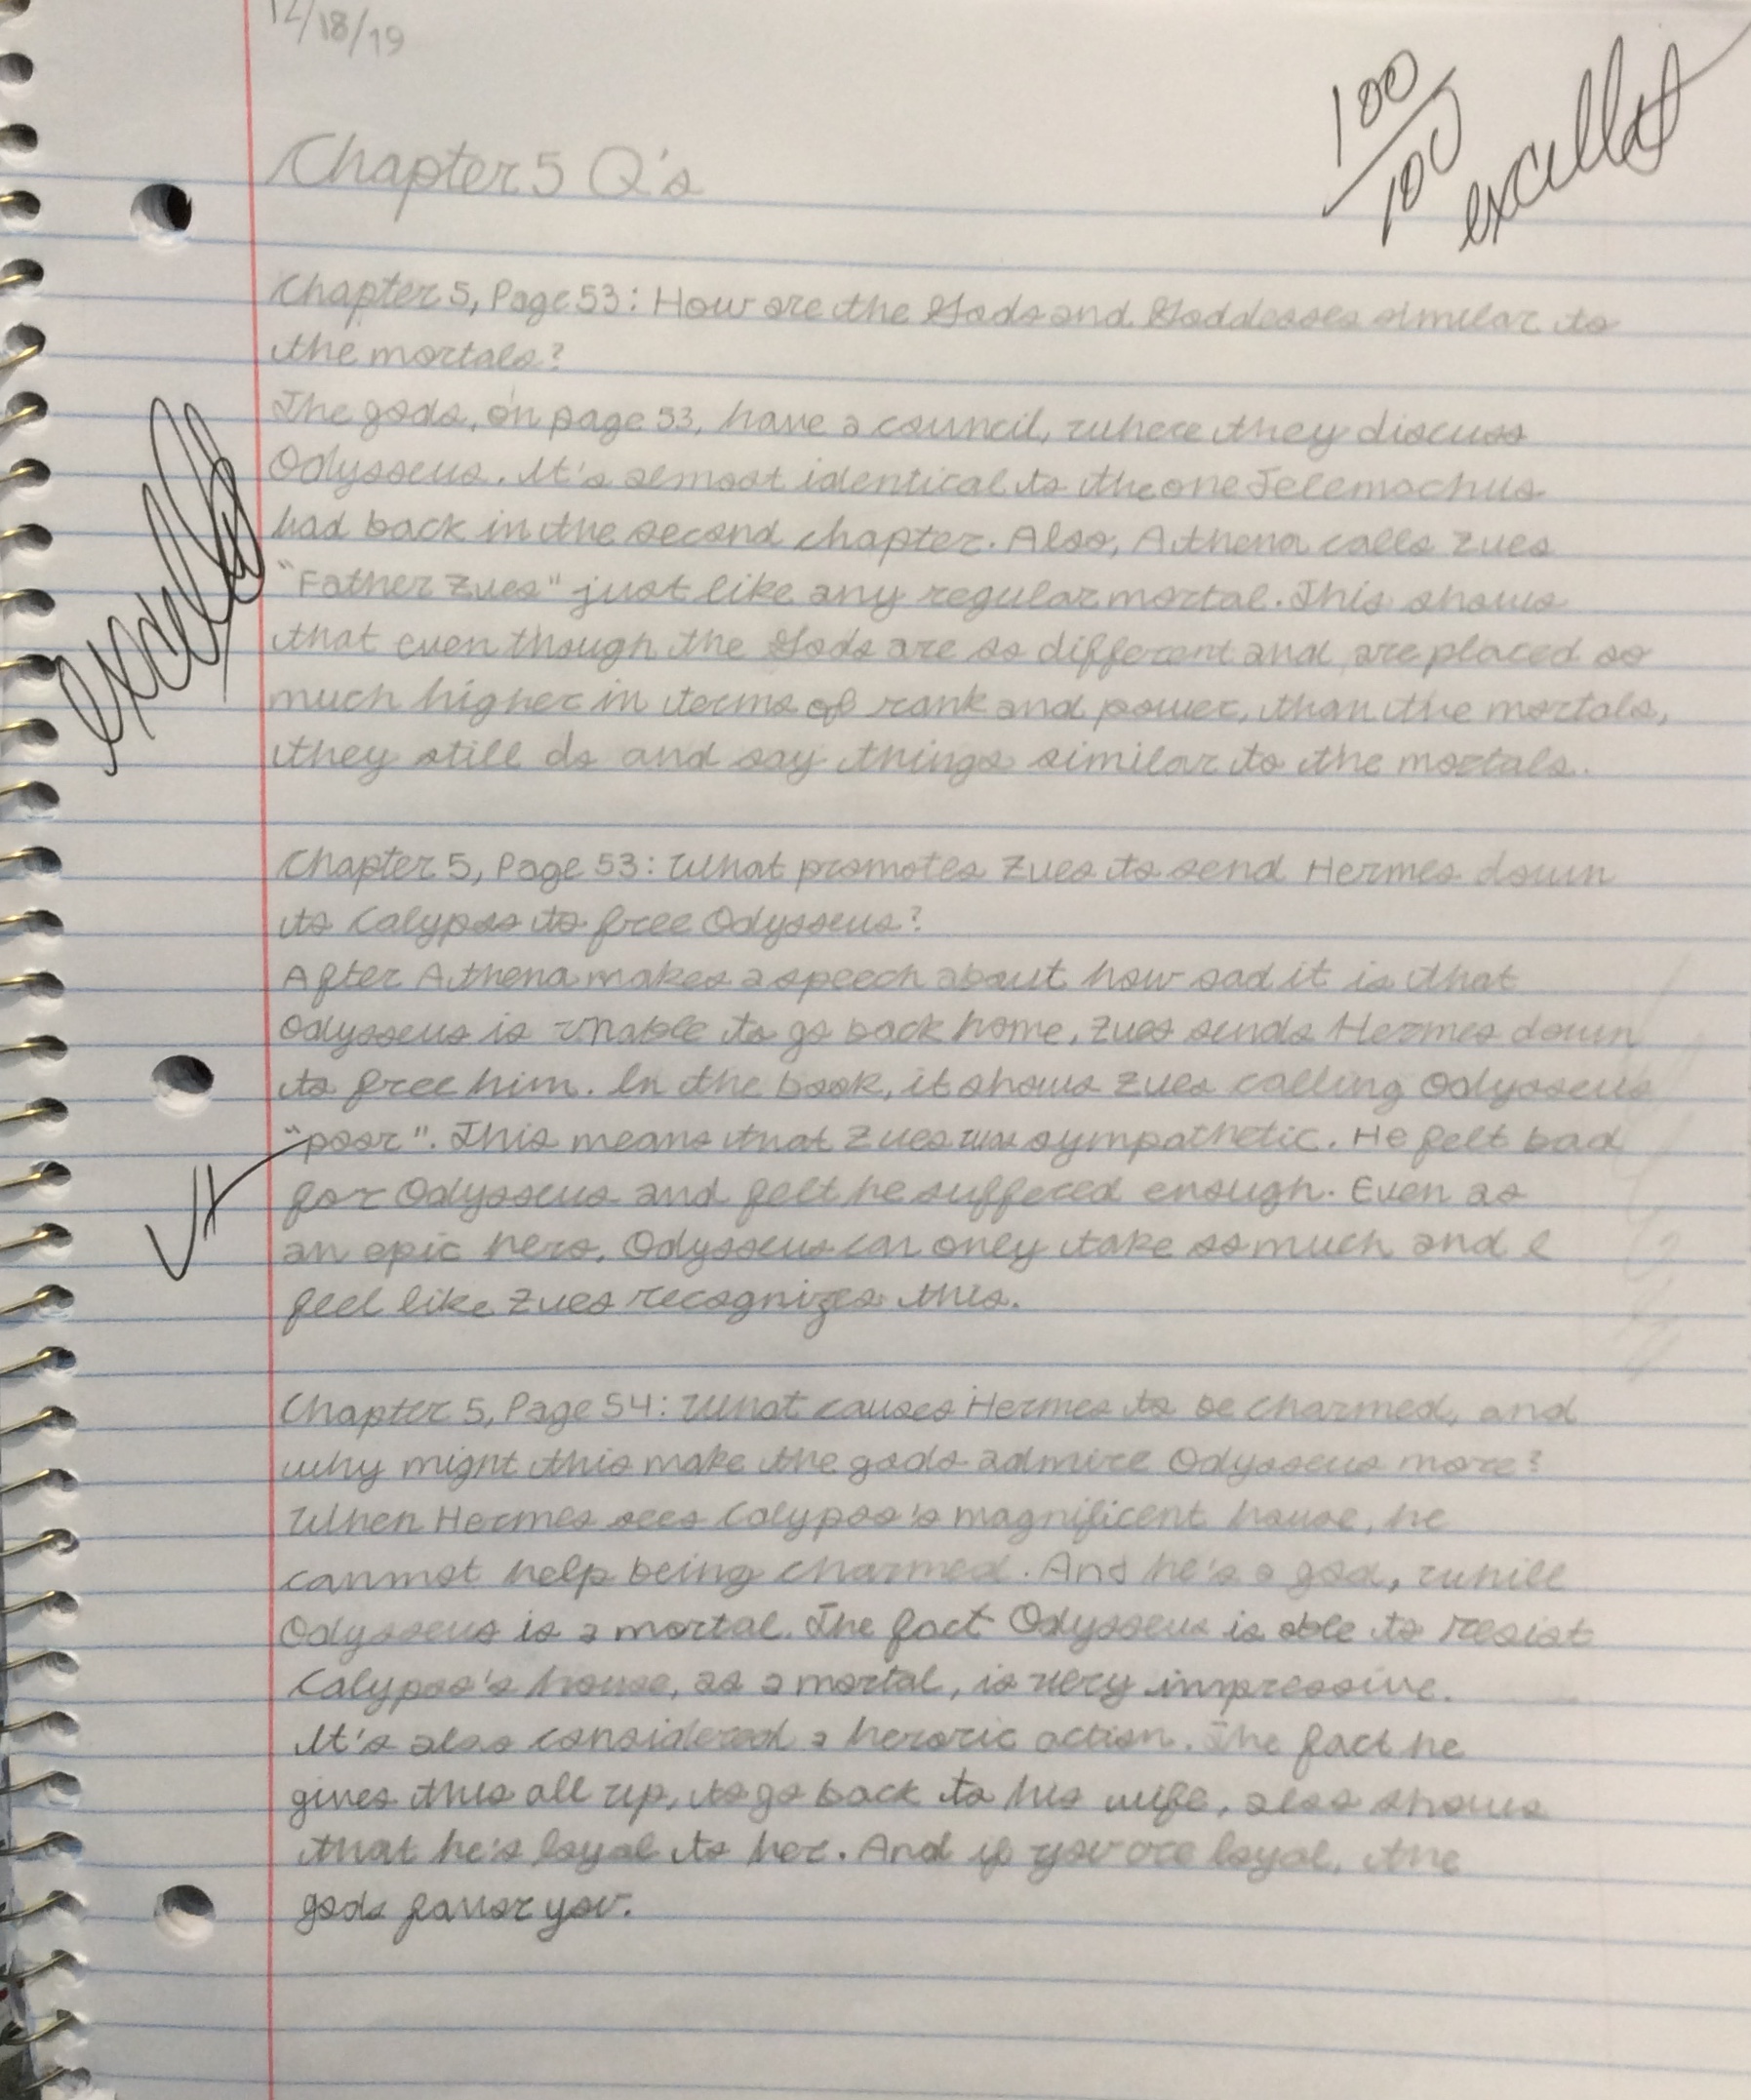 12/18/19
100/100 excellent
Chapter 5 Q's
Chapter 5, Page 53: How are the Gods and Goddesses similar to
the mortals?
The gods, on page 53, have a council, where they discuss
Odysseus. It's almost identical to the one Telemachus
had back in the second chapter. Also, Athena calls Zues
"Father Zues" just like any regular mortal. This shows
that even though the Gods are so different and are placed so
much higher in terms of rank and power, than the mortals,
they still do and say things similar to the mortals.
excellent
Chapter 5, Page 53: What promotes Zues to send Hermes down
to Calypso to free Odysseus?
After Athena makes a speech about how sad it is that
Odysseus is unable to go back home, Zues sends Hermes down
to free him. In the book, it shows Zues calling Odysseus
"poor". This means that Zues was sympathetic. He felt bad
for Odysseus and felt he suffered enough. Even as
an epic hero, Odysseus can only take so much and I
feel like Zues recognizes this.
✓+
Chapter 5, Page 54: What causes Hermes to be charmed, and
why might this make the gods admire Odysseus more?
When Hermes sees Calypso's magnificent house, he
cannot help being charmed. And he's a god, while
Odysseus is a mortal. The fact Odysseus is able to resist
Calypso's house, as a mortal, is very impressive.
It's also considered a heroric action. The fact he
gives this all up, to go back to his wife, also shows
that he's loyal to her. And if you are loyal, the
gods favor you.